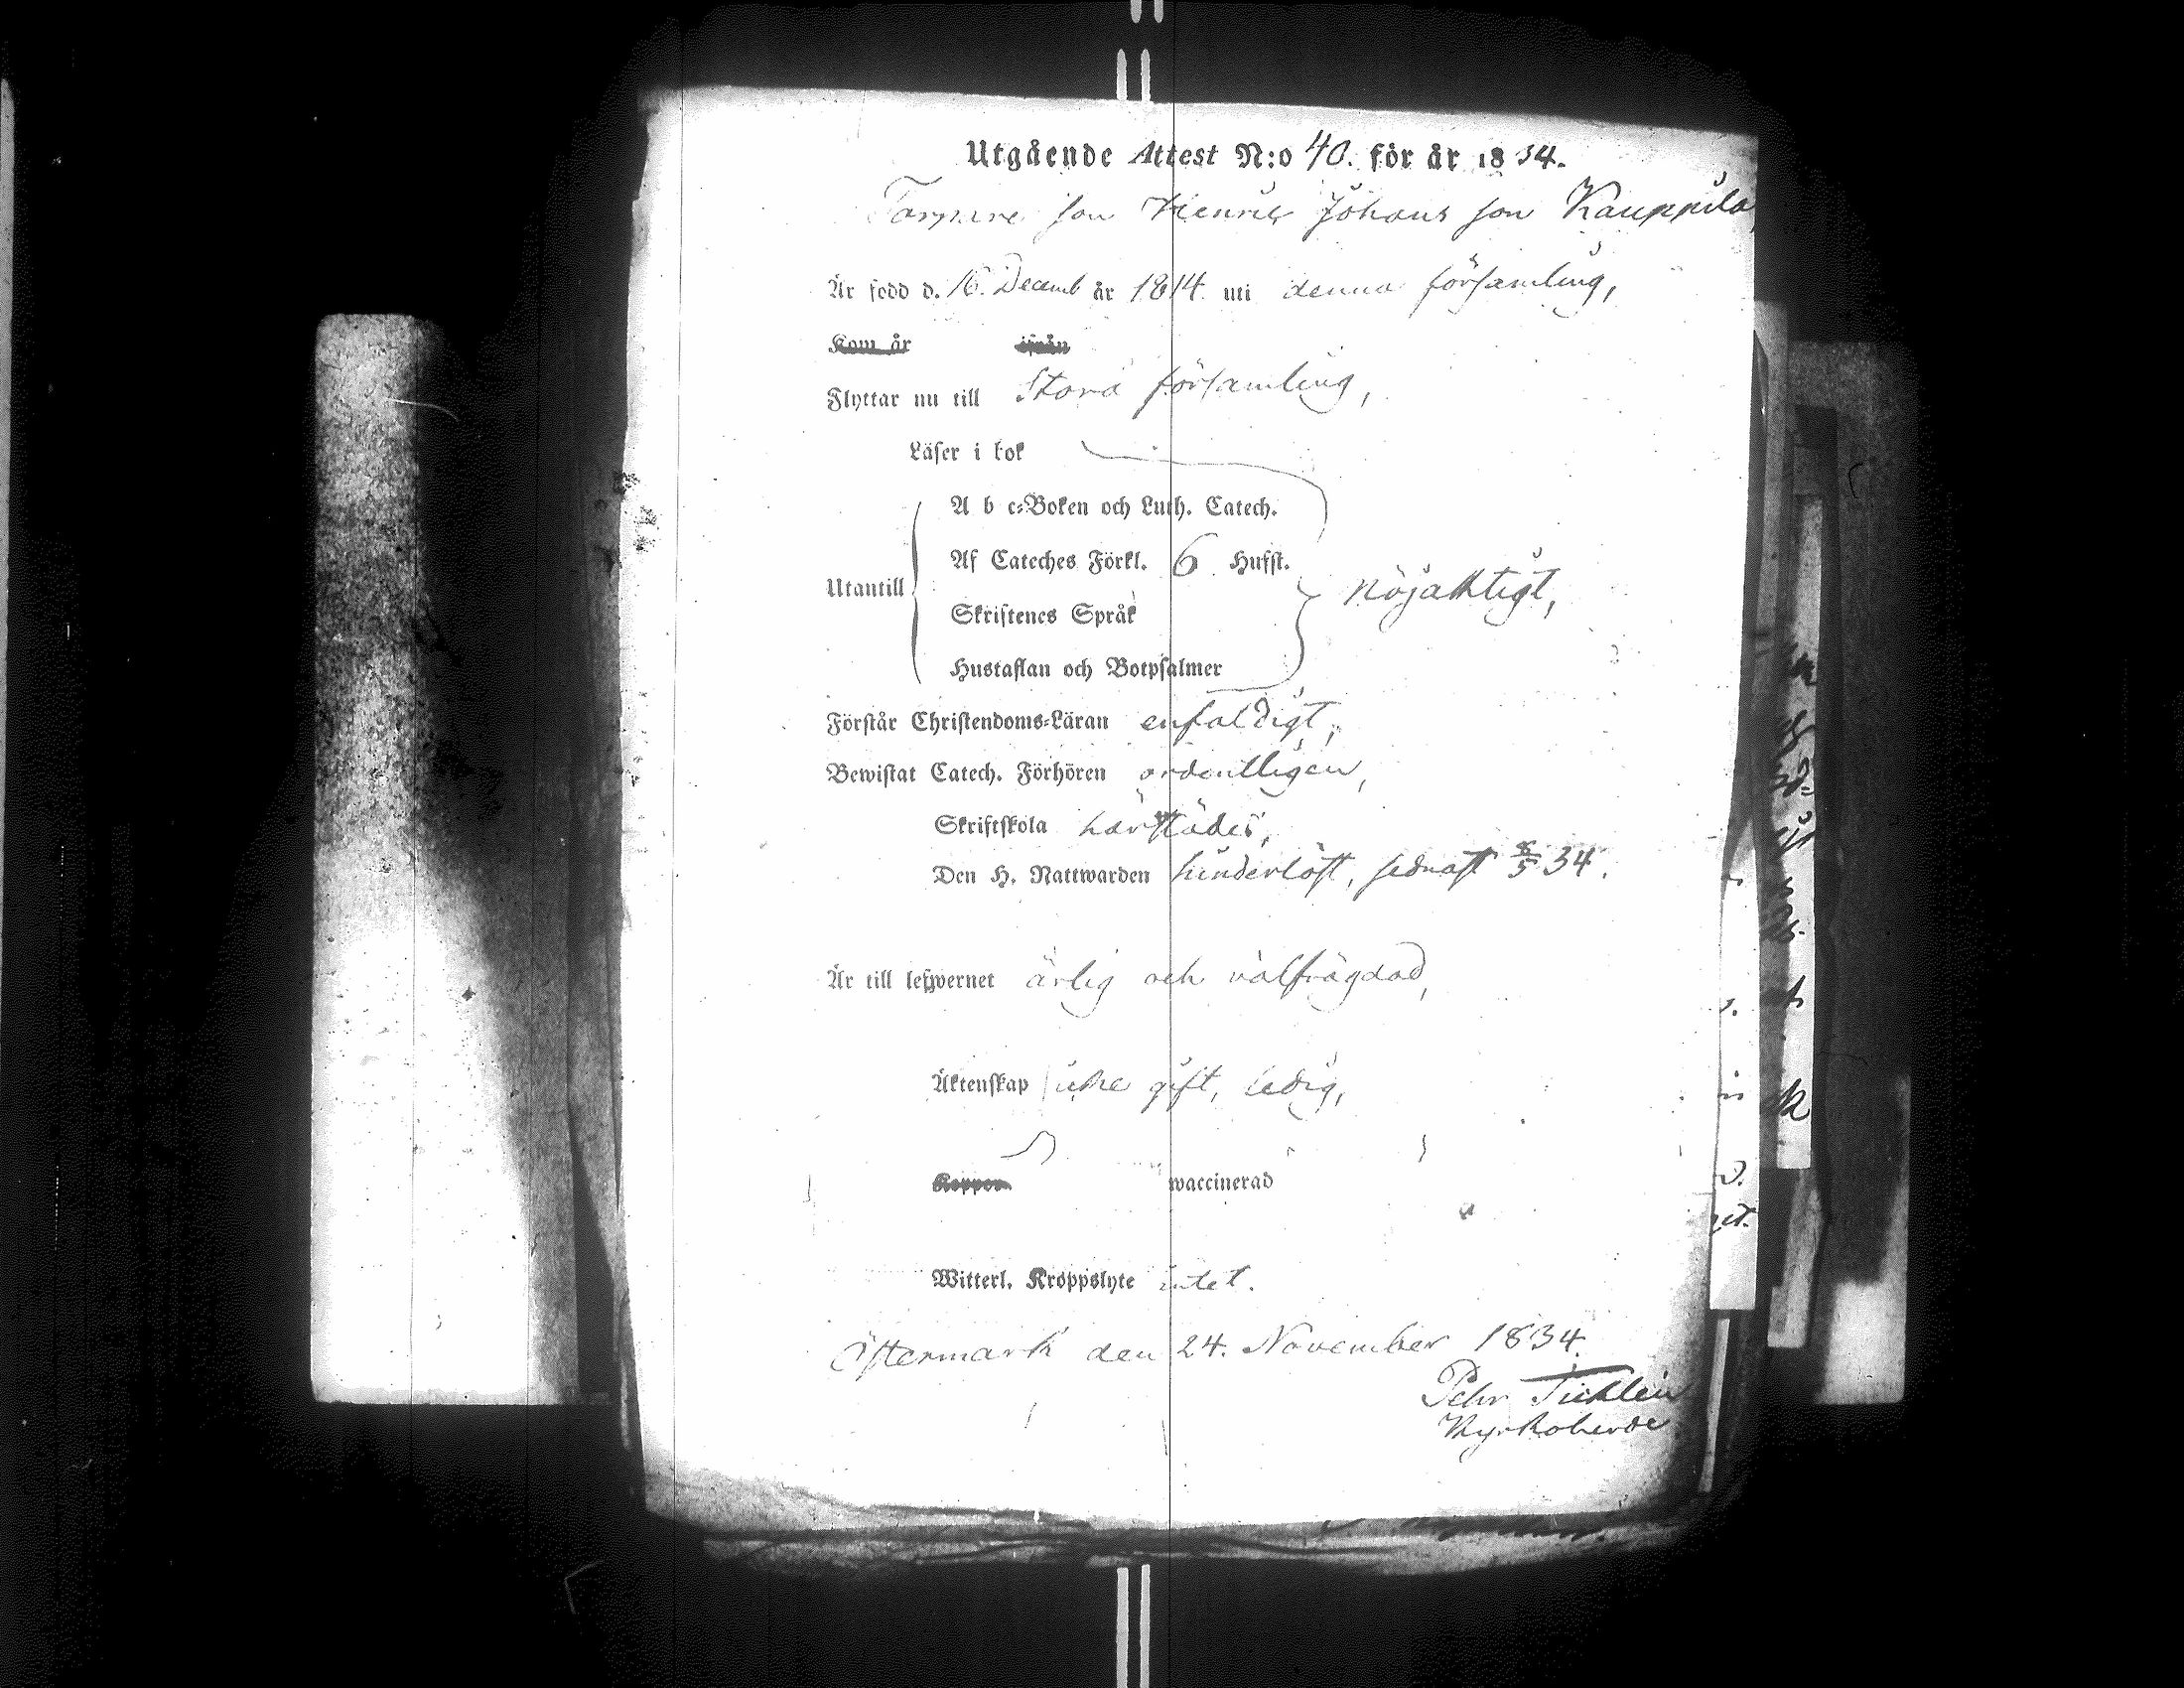 Utgående Attest N:o 40. för år 1834.
Torpare son Henric Johans son Kauppila
Är född d. 16. Decemb år 1814 uti denna församling,
Kom år ifrån
Flyttar nu till Storå församling,
Läser i bok
A b c-Boken och Luth. Catech.
Af Cateches Förkl. 6 Hufst.
Utantill nöjaktigt,
Skriftenes Språk
Hustaflan och Botpsalmer
Förstår Christendoms-Läran enfaldigt,
Bewistat Catech. Förhören ordentligen,
Skriftskola härstädes,
Den H. Nattwarden hinderlöst, sednast 8/5 34.
Är till lefwernet ärlig och välfrägdad,
Äktenskap icke gift, ledig,
Koppor waccinerad
Witterl. Kroppslyte intet.
Östermark den 24. November 1834.
Pehr
Kyrkoherde